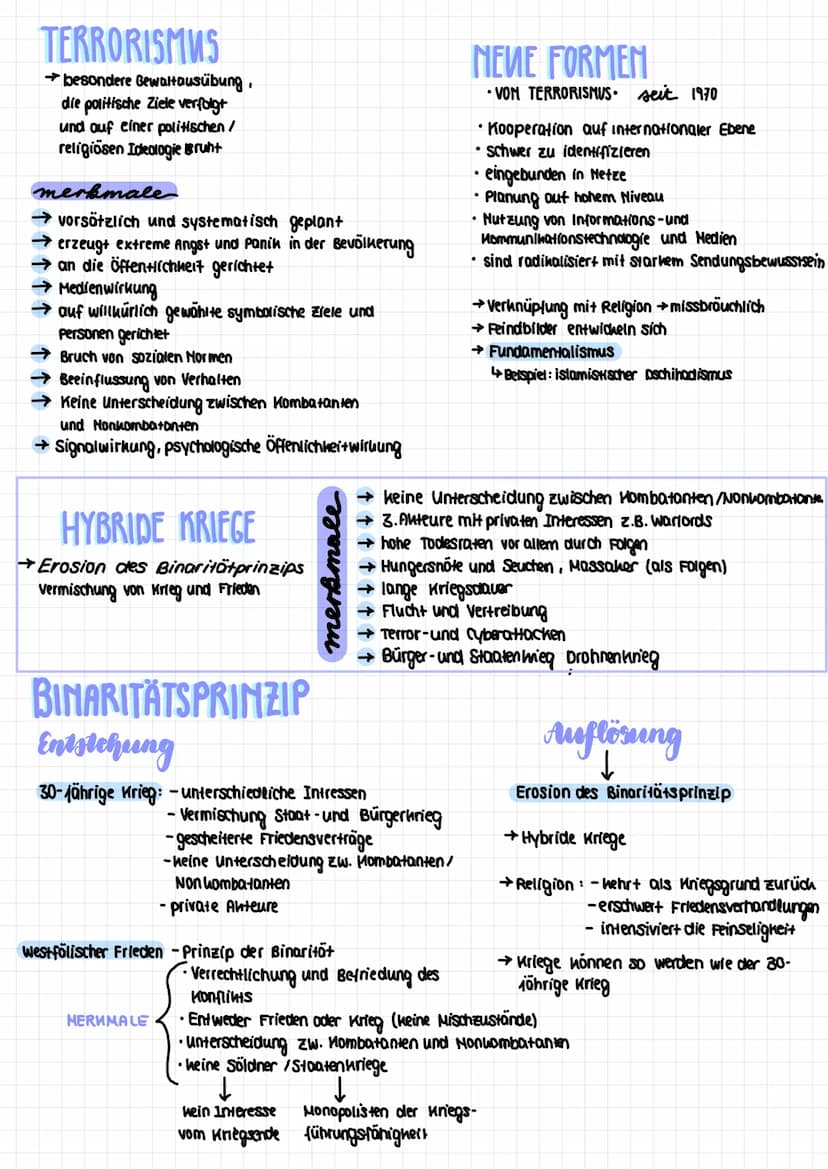 TERRORISMUS
→ besondere Gewaltausübung,
die politische Ziele verfolgt
und auf einer politischen /
religiösen Ideologie bruht
merkmale
→ vorsätzlich und systematisch geplant
→ erzeugt extreme Angst und Panik in der Bevölkerung
→ an die Öffentlichkeit gerichtet
→ Medienwirkung
→ auf willkürlich gewählte symbolische Ziele und
Personen gerichtet
→ Bruch von sozialen Normen
→ Beeinflussung von Verhalten
→ Keine Unterscheidung zwischen Kombatanten
und Nonkombatanten
→ Signalwirkung, psychologische Öffenlichkeitwirkung
NEUE FORMEN
• VOM TERRORISMUS • seit 1970
• Kooperation auf internationaler Ebene
• schwer zu identifizieren
• eingebunden in Netze
• Planung auf hohem Niveau
• Nutzung von Informations-und
Kommunikationstechnologie und Medien
• sind radikalisiert mit starkem Sendungsbewusstsein
→ Verknüpfung mit Religion → missbräuchlich
→ Feindbilder entwickeln sich
→ Fundamentalismus
↳ Beispiel: islamistischer Dschihadismus
HYBRIDE KRIEGE
→ Erosion des Binaritätprinzips
Vermischung von Krieg und Frieden
merkmale
→ keine Unterscheidung zwischen Kombatanten/Nonkombatante
→ 3. Akteure mit privaten Interessen z.B. Warlords
→ hohe Todesraten vor allem durch Folgen
→ Hungersnöte und Seuchen, Massaker (als Folgen)
→ lange Kriegsdauer
→ Flucht und Vertreibung
→ Terror-und Cyberattacken
→ Bürger-und Staatenkrieg Drohnenkrieg
BINARITÄTSPRINZIP
Entstehung
30-jährige Krieg: - unterschiedliche Intressen
- Vermischung Staat-und Bürgerkrieg
- gescheiterte Friedensverträge
- keine Unterscheidung zw. Kombatanten/
Nonkombatanten
- private Akteure
Westfälischer Frieden - Prinzip der Binarität
MERKMALE
• Verrechtlichung und Befriedung des
Konflikts
• Entweder Frieden oder Krieg (keine Mischzustände)
• Unterscheidung zw. Kombatanten und Nonkombatanten
• keine Söldner / Staatenkriege
↓ ↓
kein Interesse Monopolisten der Kriegs-
vom Kriegsende führungsfähigkeit
Auflösung
↓
Erosion des Binaritätsprinzip
→ Hybride Kriege
→ Religion: - kehrt als Kriegsgrund zurück
- erschwert Friedensverhandlungen
- intensiviert die Feinseligkeit
→ Kriege können so werden wie der 30-
jährige Krieg